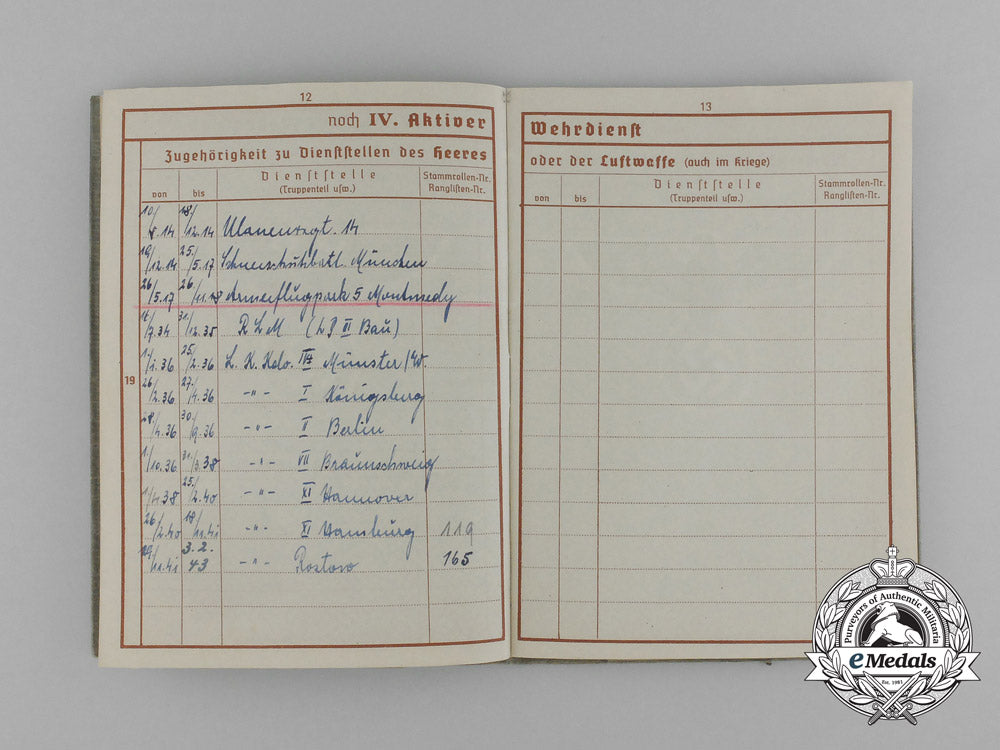 12
noch IV. Aktiver
Zugehörigkeit zu Dienststellen des Heeres
von bis Dienststelle (Truppenteil usw.) Stammrollen-Nr. Ranglisten-Nr.
19
10/8.14 18/12.14 Ulanenregt. 14
19/12.14 25/5.17 Schneeschuhbatl. München
26/5.17 26/11.18 Armeeflugpark 5 Montmedy
7.34 31/12.35 R L M (L II Bau)
1/1.36 25/2.36 L. K. Kdo. Münster /W.
26/2.36 27/4.36 -"- I Königsburg
28/4.36 30/9.36 -"- II Berlin
1/10.36 31/3.38 -"- VII Braunschweig
1/4.38 25/2.40 -"- XI Hannover
26/2.40 18/11.41 -"- XI Hamburg 119
19/11.41 3.2.43 -"- Rostow 165
13
Wehrdienst
oder der Luftwaffe (auch im Kriege)
von bis Dienststelle (Truppenteil usw.) Stammrollen-Nr. Ranglisten-Nr.
Purveyors of Authentic Militaria
eMedals
Est. 1981